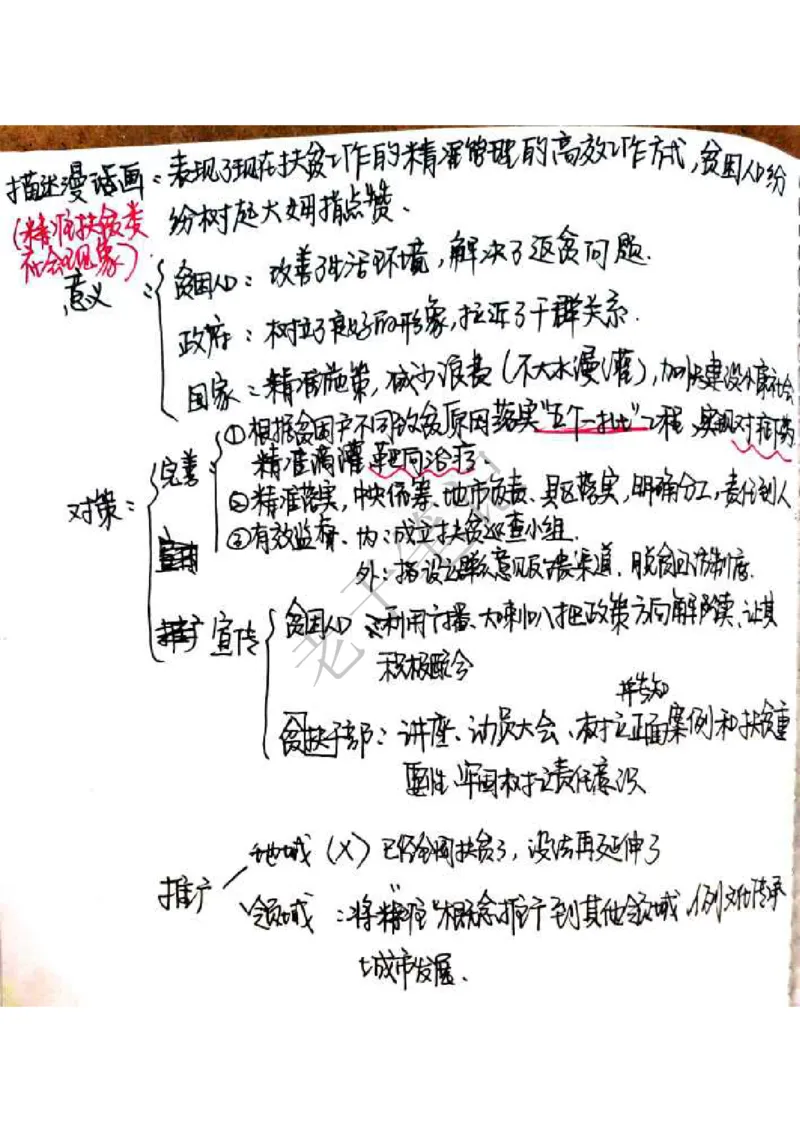 描述漫画：表现了现在扶贫工作的精准管理的高效工作方式，贫困人口纷
(精准扶贫类
社会现象)
纷树起大姆指点赞、
意义：
贫困人口：改善了生活环境，解决了返贫问题.
政府：树立了良好的形象，拉近了干群关系.
国家：精准施策，减少浪费（不大水漫灌），加快建设小康社会
对策：
完善
①根据贫困户不同致贫原因落实"五个一批"工程，实现对症下药
精准滴灌、靶向治疗、
②精准落实，中央统筹、地市负责、县区落实，明确分工，责任到人
③有效监督、内：成立扶贫巡查小组.
外：设立群众意见反馈渠道、脱贫回访制度.
宣传
贫困人口：利用广播、大喇叭把政策方向解读、让其
积极配合
并告知
扶干部：讲座、动员大会、树立正面案例和扶贫重
要性 牢固树立责任意识
推广
地域（X）已经全国扶贫了，没法再延伸了
领域：将"精准"概念推广到其他领域、例文化传承
城市发展、
老干笔记